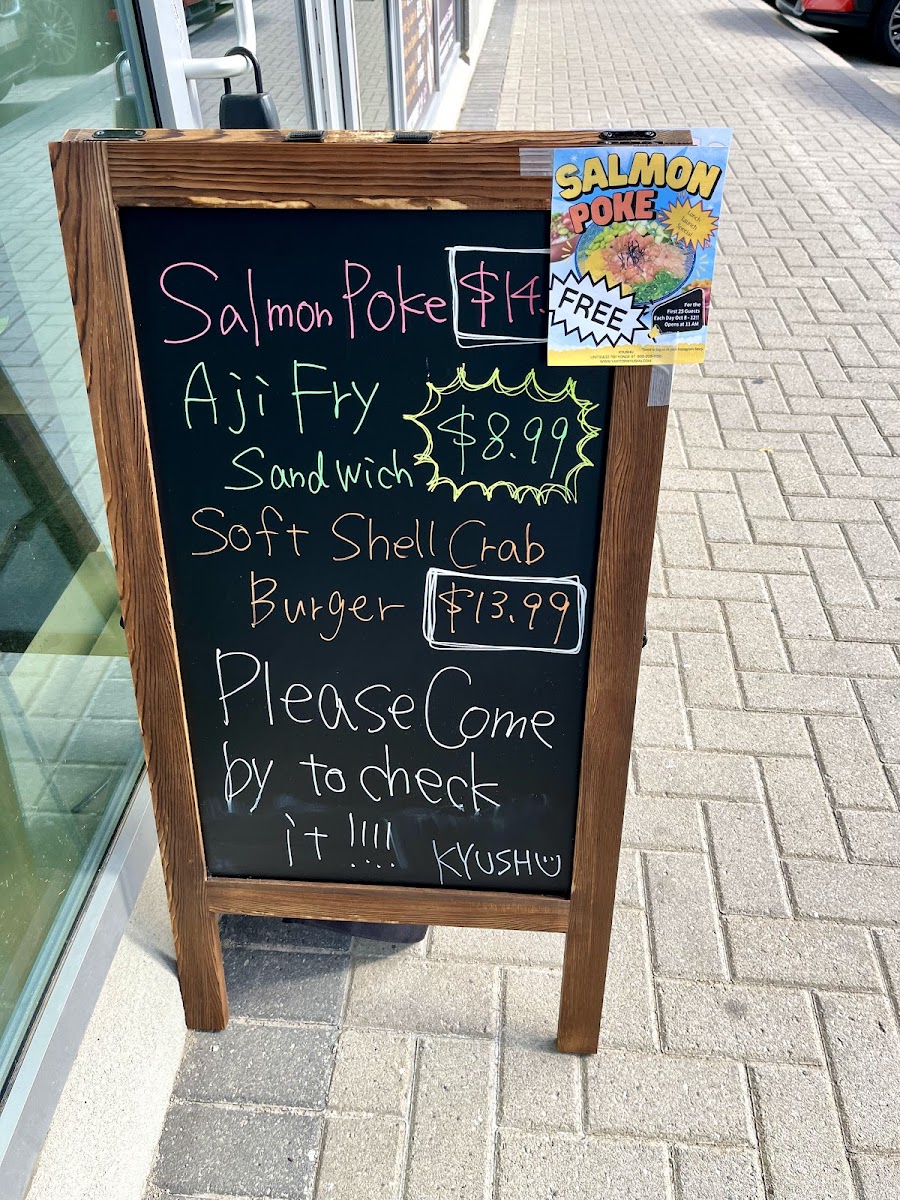 Salmon Poke $14.
Aji Fry
$8.99
Sandwich
Soft Shell Crab
Burger $13.99
Please Come
by to check
it !!!!
KYUSHU
SALMON
POKE
Lunch
Launch
Special
FREE
For the
First 25 Guests
Each Day Oct 8 - 12!!
Opens at 11 AM